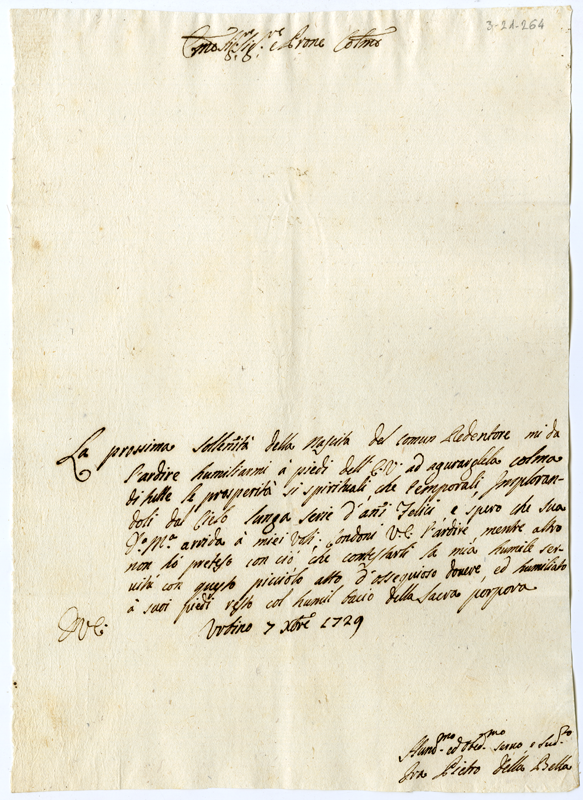 3-21-264
Em̃o Sig.re Sig.re e Prone Colmo
La prossima sollennità della Nascita del comun Redentore mi dà
l'ardire humiliarmi à piedi dell'E.V. ad agurargliela colma
di tutte le prosperità sì spirituali, che temporali, Imploran-
doli dal Cielo lunga serie d'anni felici, e spero che sua
D.a M.a arrida à miei voti. Condoni V.E. l'ardire, mentre altro
non hò preteso con ciò, che contestarli la mia humile ser-
vitù con questo picciolo atto d'ossequioso dovere, ed humiliato
à suoi piedi resto col humil bacio della Sacra porpora
D V.E. Urbino 7 Xbre 1729
Hum.mo ed Obed.mo Servo, e Sud.to
Fra Pietro della Bella